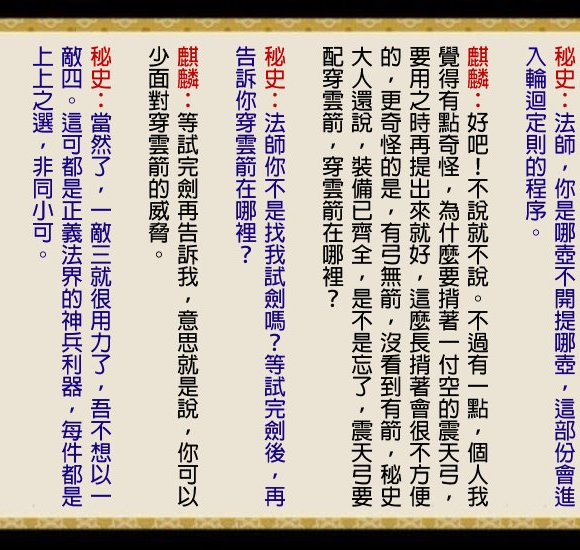 秘史：法師，你是哪壺不開提哪壺，這部份會進
入輪迴定則的程序。
麒麟：好吧！不說就不說。不過有一點，個人我
覺得有點奇怪，為什麼要揹著一付空的震天弓，
要用之時再提出來就好，這麼長揹著會很不方便
的，更奇怪的是，有弓無箭，沒看到有箭，秘史
大人還說，裝備已齊全，是不是忘了，震天弓要
配穿雲箭，穿雲箭在哪裡？
秘史：法師你不是找我試劍嗎？等試完劍後，再
告訴你穿雲箭在哪裡？
麒麟：等試完劍再告訴我，意思就是說，你可以
少面對穿雲箭的威脅。
秘史：當然了，一敵三就很用力了，吾不想以一
敵四。這可都是正義法界的神兵利器，每件都是
上上之選，非同小可。